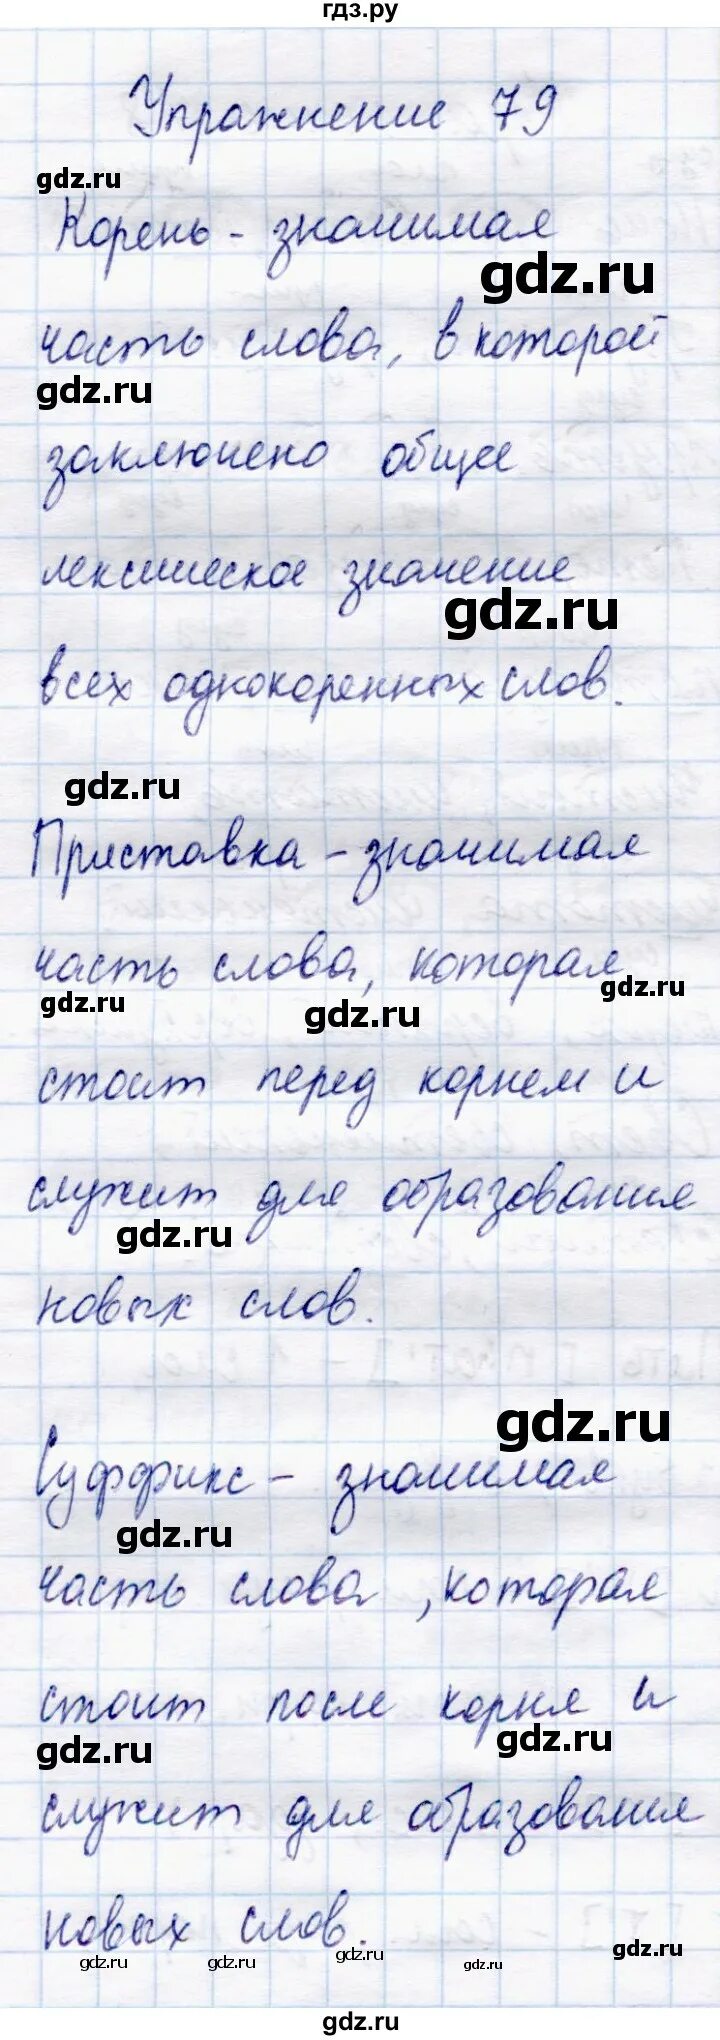 гдз.ру
Упражнение 79
gdz.ru
Корень - значимая
gdz.ru
часть слова, в которой
gdz.ru
заключено общее
лексическое значение
gdz.ru
всех однокоренных слов.
gdz.ru
Приставка - значимая
часть слова, которая
gdz.ru gdz.ru gdz.ru
стоит перед корнем и
служит для образования
gdz.ru
новых слов.
gdz.ru
Суффикс - значимая
gdz.ru
часть слова, которая
стоит после корня и
gdz.ru gdz.ru
служит для образования
новых слов.
gdz.ru gdz.ru gdz.ru gdz.ru gdz.ru
gdz.ru